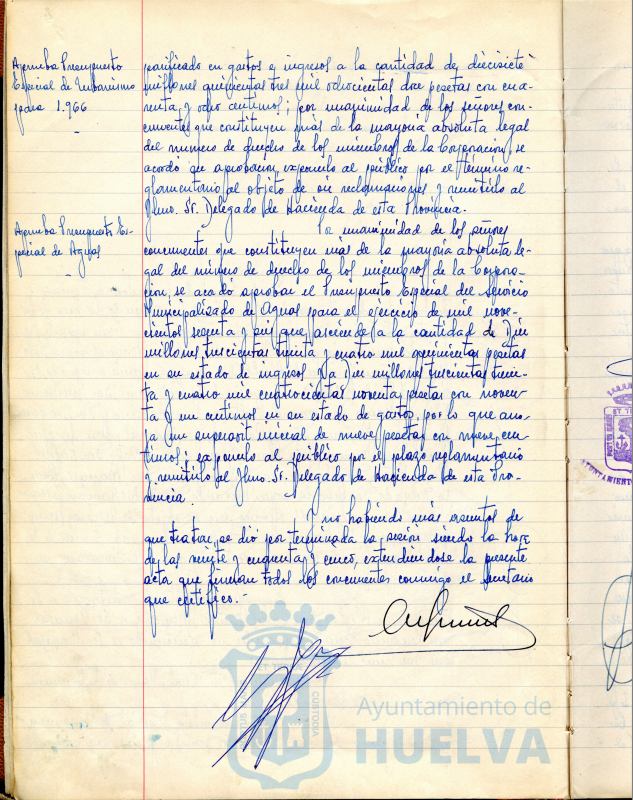 Aprueba Presupuesto
Especial de Urbanismo
para 1.966
nificado en gastos e ingresos a la cantidad de diecisiete
millones quinientas tres mil ochocientas doce pesetas con cua-
renta y ocho centimos; por unanimidad de los señores con-
currentes que constituyen más de la mayoria absoluta legal
del numero de derecho de los miembros de la Corporación, se
acordó su aprobacion, exponerlo al público por el término re-
glamentario al objeto de oir reclamaciones y remitirlo al
Ilmo. Sr. Delegado de Hacienda de esta Provincia.
Aprueba Presupuesto Es-
pecial de Aguas
Por unanimidad de los señores
concurrentes que constituyen más de la mayoria absoluta le-
gal del número de derecho de los miembros de la Corpora-
cion, se acordó aprobar el Presupuesto Especial del Servicio
Municipalizado de Aguas para el ejercicio de mil nove-
cientos sesenta y seis que asciende a la cantidad de Diez
millones trescientas treinta y cuatro mil quinientas pesetas
en su estado de ingresos y a Diez millones trescientas trein-
ta y cuatro mil cuatrocientas noventa pesetas con noven-
ta y un centimos en su estado de gastos, por lo que arro-
ja un superavit inicial de nueve pesetas con nueve cen-
timos; exponerlo al público por el plazo reglamentario
y remitirlo al Ilmo. Sr. Delegado de Hacienda de esta Pro-
vincia.
Y no habiendo más asuntos de
que tratar, se dió por terminada la sesión siendo la hora
de las veinte y cincuenta y cinco, extendiendose la presente
acta que firman todos los concurrentes conmigo el secretario
que certifico.-
Ayuntamiento de
HUELVA